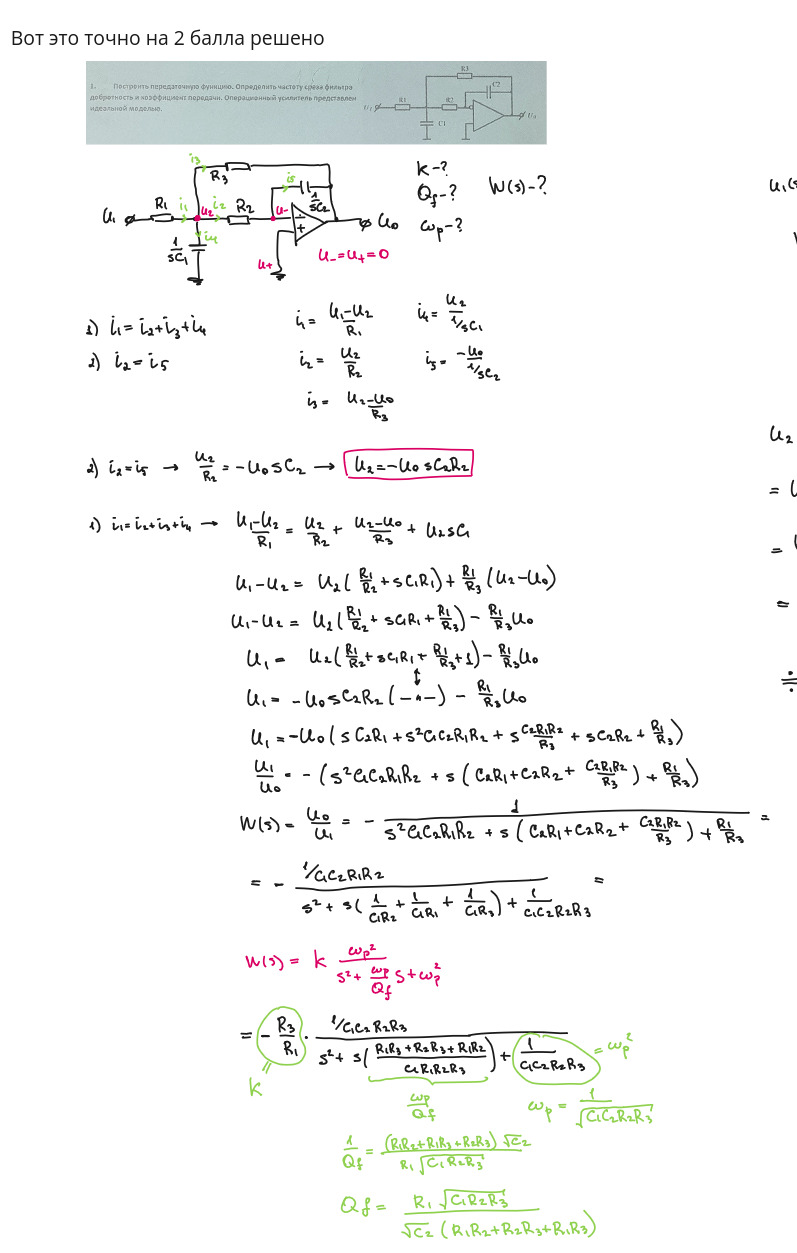 Вот это точно на 2 балла решено
1. Построить передаточную функцию. Определить частоту среза фильтра
добротность и коэффициент передачи. Операционный усилитель представлен
идеальной моделью.
R3
C2
U₁ R1 R2 U₀
C1
i₃ R₃ i₅ 1/sC₂
U₁ R₁ i₁ U₂ i₂ R₂ U₋ − + U₀
1/sC₁ i₄ U₊ U₋=U₊=0
k-?
Qf-? W(s)-?
ωp-?
U₁(s
1) i₁=i₂+i₃+i₄ i₁= (U₁-U₂)/R₁ i₄= U₂/(1/sC₁)
2) i₂=i₅ i₂= U₂/R₂ i₅= -U₀/(1/sC₂)
i₃= (U₂-U₀)/R₃
U₂
2) i₂=i₅ → U₂/R₂ = -U₀sC₂ → U₂=-U₀sC₂R₂
1) i₁=i₂+i₃+i₄ → (U₁-U₂)/R₁ = U₂/R₂ + (U₂-U₀)/R₃ + U₂sC₁
U₁-U₂ = U₂(R₁/R₂ + sC₁R₁) + R₁/R₃ (U₂-U₀)
U₁-U₂ = U₂(R₁/R₂ + sC₁R₁ + R₁/R₃) - R₁/R₃ U₀
U₁ = U₂(R₁/R₂ + sC₁R₁ + R₁/R₃ + 1) - R₁/R₃ U₀
U₁ = -U₀sC₂R₂(-"-) - R₁/R₃ U₀
U₁ = -U₀(sC₂R₁ + s²C₁C₂R₁R₂ + s C₂R₁R₂/R₃ + sC₂R₂ + R₁/R₃)
U₁/U₀ = -(s²C₁C₂R₁R₂ + s(C₂R₁+C₂R₂+ C₂R₁R₂/R₃) + R₁/R₃)
W(s) = U₀/U₁ = - 1/(s²C₁C₂R₁R₂ + s(C₂R₁+C₂R₂+ C₂R₁R₂/R₃) + R₁/R₃) =
= - (1/C₁C₂R₁R₂)/(s² + s(1/C₁R₂ + 1/C₁R₁ + 1/C₁R₃) + 1/C₁C₂R₂R₃) =
W(s) = k ωp²/(s² + ωp/Qf s + ωp²)
= - R₃/R₁ · (1/C₁C₂R₂R₃)/(s² + s((R₁R₃+R₂R₃+R₁R₂)/C₁R₁R₂R₃) + 1/C₁C₂R₂R₃) = ωp²
k
ωp/Qf ωp = 1/√C₁C₂R₂R₃
1/Qf = (R₁R₂+R₁R₃+R₂R₃)√C₂/R₁√C₁R₂R₃
Qf = R₁√C₁R₂R₃/√C₂(R₁R₂+R₂R₃+R₁R₃)